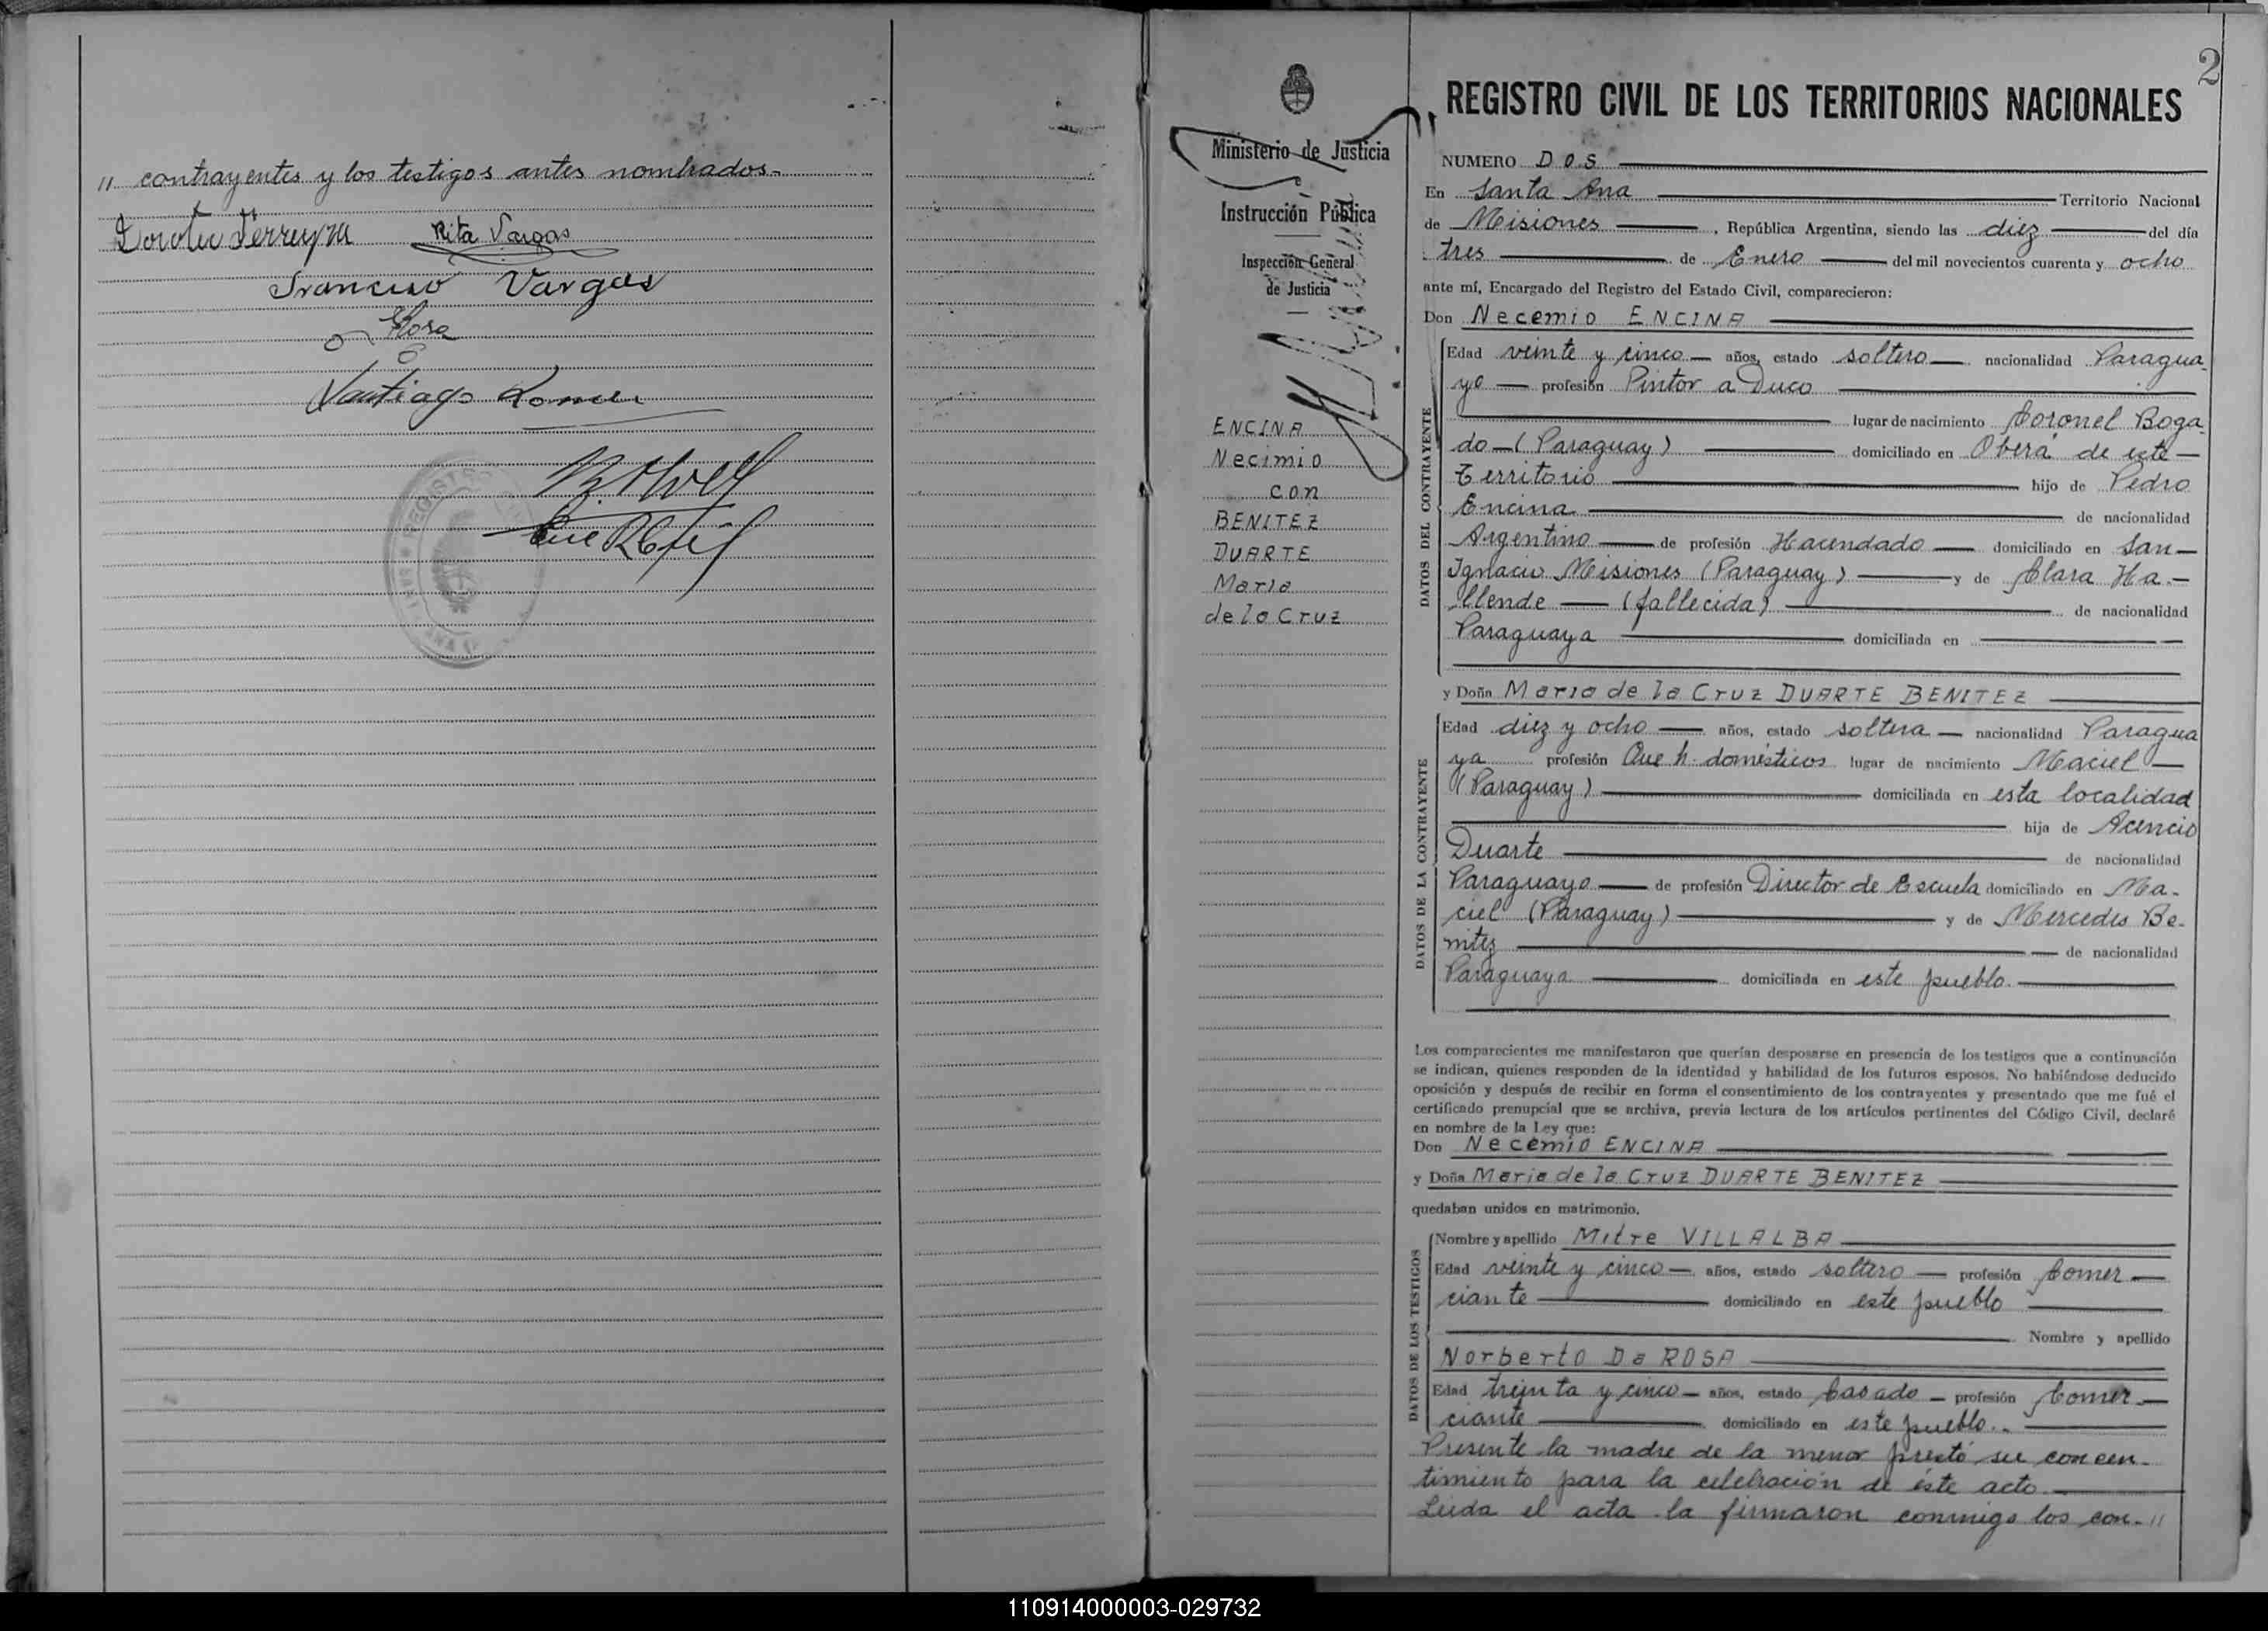 " contrayentes y los testigos antes nombrados.-
Ferreyra Rita Vargas
Francisco Vargas
Flora
Santiago
2
Ministerio de Justicia
e
Instrucción Pública
Inspección General
de Justicia
ENCINA
Necimio
con
BENITEZ
DUARTE
Maria
de la Cruz
REGISTRO CIVIL DE LOS TERRITORIOS NACIONALES
NUMERO DOS
En Santa Ana Territorio Nacional
de Misiones , República Argentina, siendo las diez del día
tres de Enero del mil novecientos cuarenta y ocho
ante mí, Encargado del Registro del Estado Civil, comparecieron:
Don Necemio ENCINA
DATOS DEL CONTRAYENTE
Edad veinte y cinco años, estado soltero nacionalidad Paragua-
yo profesión Pintor a Duco
lugar de nacimiento Coronel Boga-
do (Paraguay) domiciliado en Oberá de este
Territorio hijo de Pedro
Encina de nacionalidad
Argentino de profesión Hacendado domiciliado en San
Ignacio Misiones (Paraguay) y de Clara Ha-
llende (fallecida) de nacionalidad
Paraguaya domiciliada en
y Doña Maria de la Cruz DUARTE BENITEZ
DATOS DE LA CONTRAYENTE
Edad diez y ocho años, estado soltera nacionalidad Paragua
ya profesión Que h. domésticos lugar de nacimiento Maciel
(Paraguay) domiciliada en esta localidad
hija de Acencio
Duarte de nacionalidad
Paraguayo de profesión Director de Escuela domiciliado en Ma-
ciel (Paraguay) y de Mercedes Be-
nitez de nacionalidad
Paraguaya domiciliada en este pueblo.
Los comparecientes me manifestaron que querían desposarse en presencia de los testigos que a continuación
se indican, quienes responden de la identidad y habilidad de los futuros esposos. No habiéndose deducido
oposición y después de recibir en forma el consentimiento de los contrayentes y presentado que me fué el
certificado prenupcial que se archiva, previa lectura de los artículos pertinentes del Código Civil, declaré
en nombre de la Ley que:
Don Necemio ENCINA
y Doña Maria de la Cruz DUARTE BENITEZ
quedaban unidos en matrimonio.
DATOS DE LOS TESTIGOS
Nombre y apellido Mitre VILLALBA
Edad veinte y cinco años, estado soltero profesión Comer-
ciante domiciliado en este pueblo
Nombre y apellido
Norberto Da ROSA
Edad treinta y cinco años, estado Casado profesión Comer-
ciante domiciliado en este pueblo..
Presente la madre de la menor prestó su concen-
timiento para la celebración de éste acto.
Leida el acta la firmaron conmigo los con-"
110914000003-029732